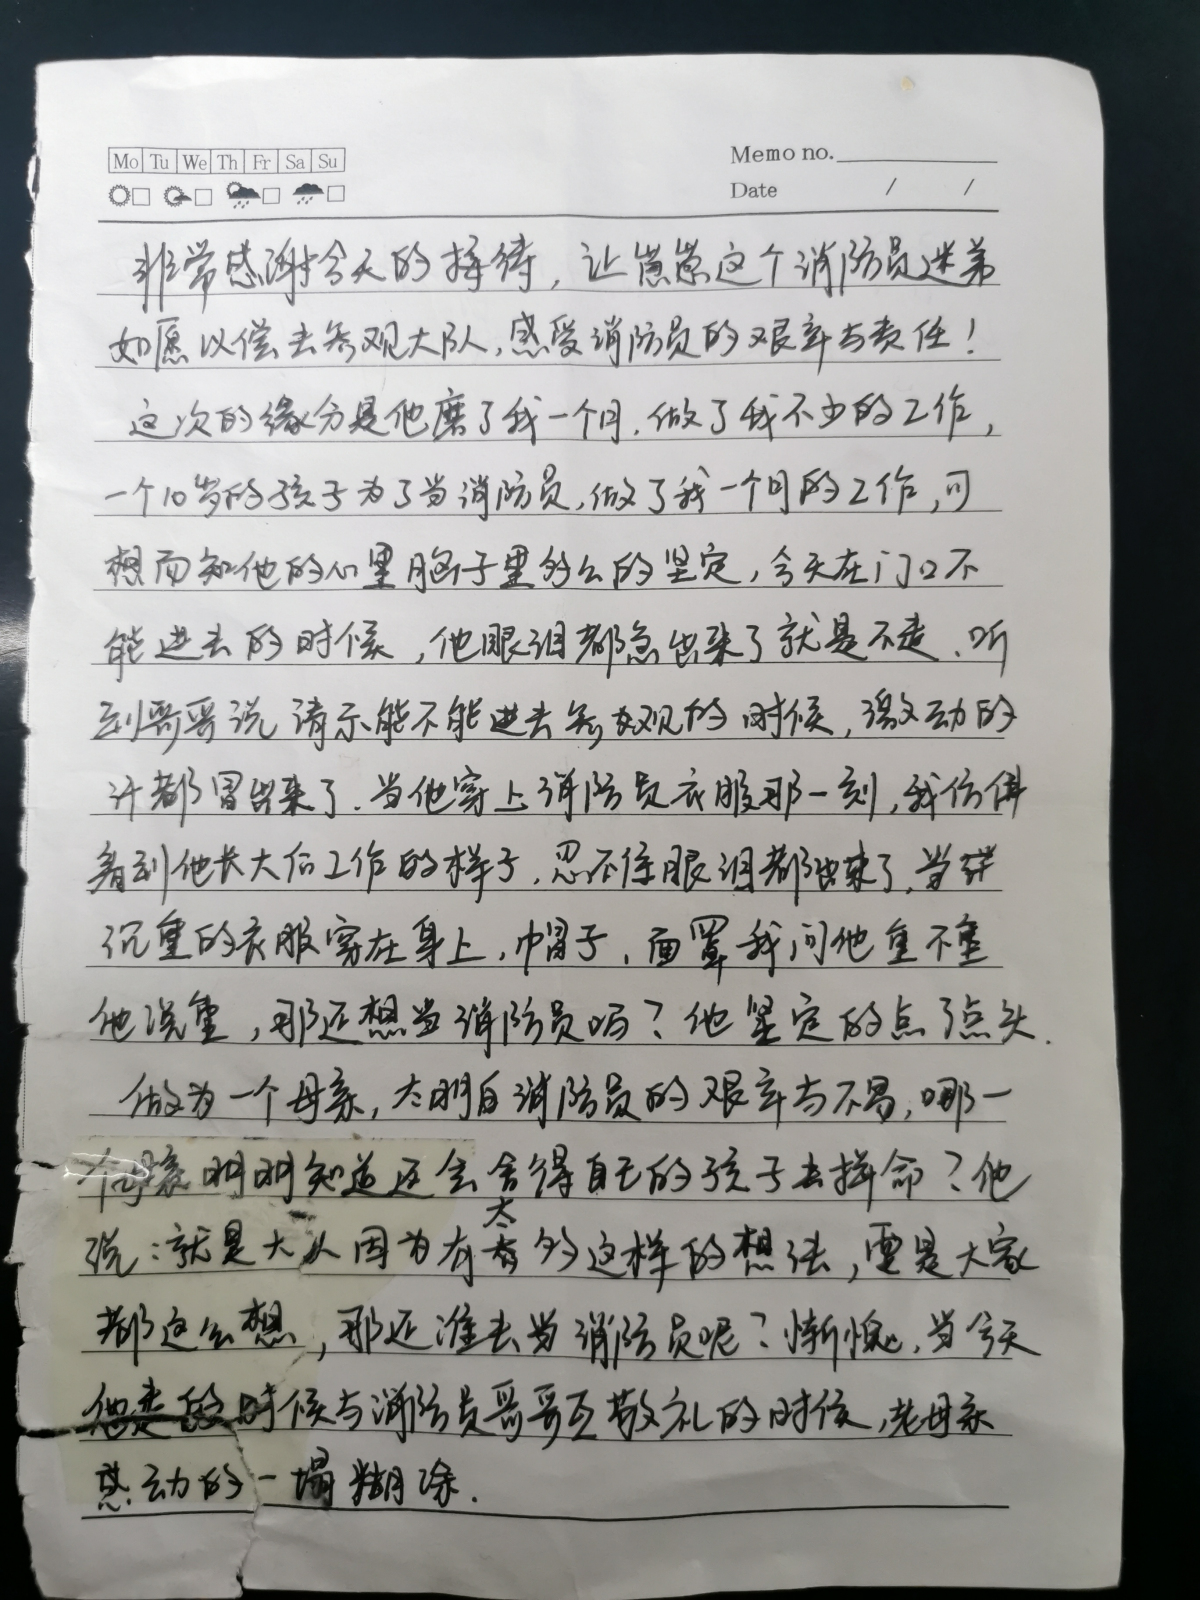 Mo Tu We Th Fr Sa Su
Memo no.
Date / /
非常感谢今天的接待，让崽崽这个消防员迷弟
如愿以偿去参观大队，感受消防员的艰辛与责任！
这次的缘分是他磨了我一个月，做了我不少的工作，
一个10岁的孩子为了当消防员，做了我一个月的工作，可
想而知他的心里脑子里多么的坚定，今天在门口不
能进去的时候，他眼泪都急出来了就是不走、听
到哥哥说请示能不能进去参观的时候，激动的
汗都冒出来了．当他穿上消防员衣服那一刻，我仿佛
看到他长大后工作的样子，忍不住眼泪都出来了，当
沉重的衣服穿在身上，帽子，面罩我问他重不重
他说重，那还想当消防员吗？他坚定的点了点头．
做为一个母亲，太明白消防员的艰辛与不易，哪一
个母亲明明知道还会舍得自己的孩子去拼命？他
说：就是大人因为有太多这样的想法，要是大家
都这么想，那还谁去当消防员呢？惭愧，当今天
他走的时候与消防员哥哥互敬礼的时候，老母亲
感动的一塌糊涂．